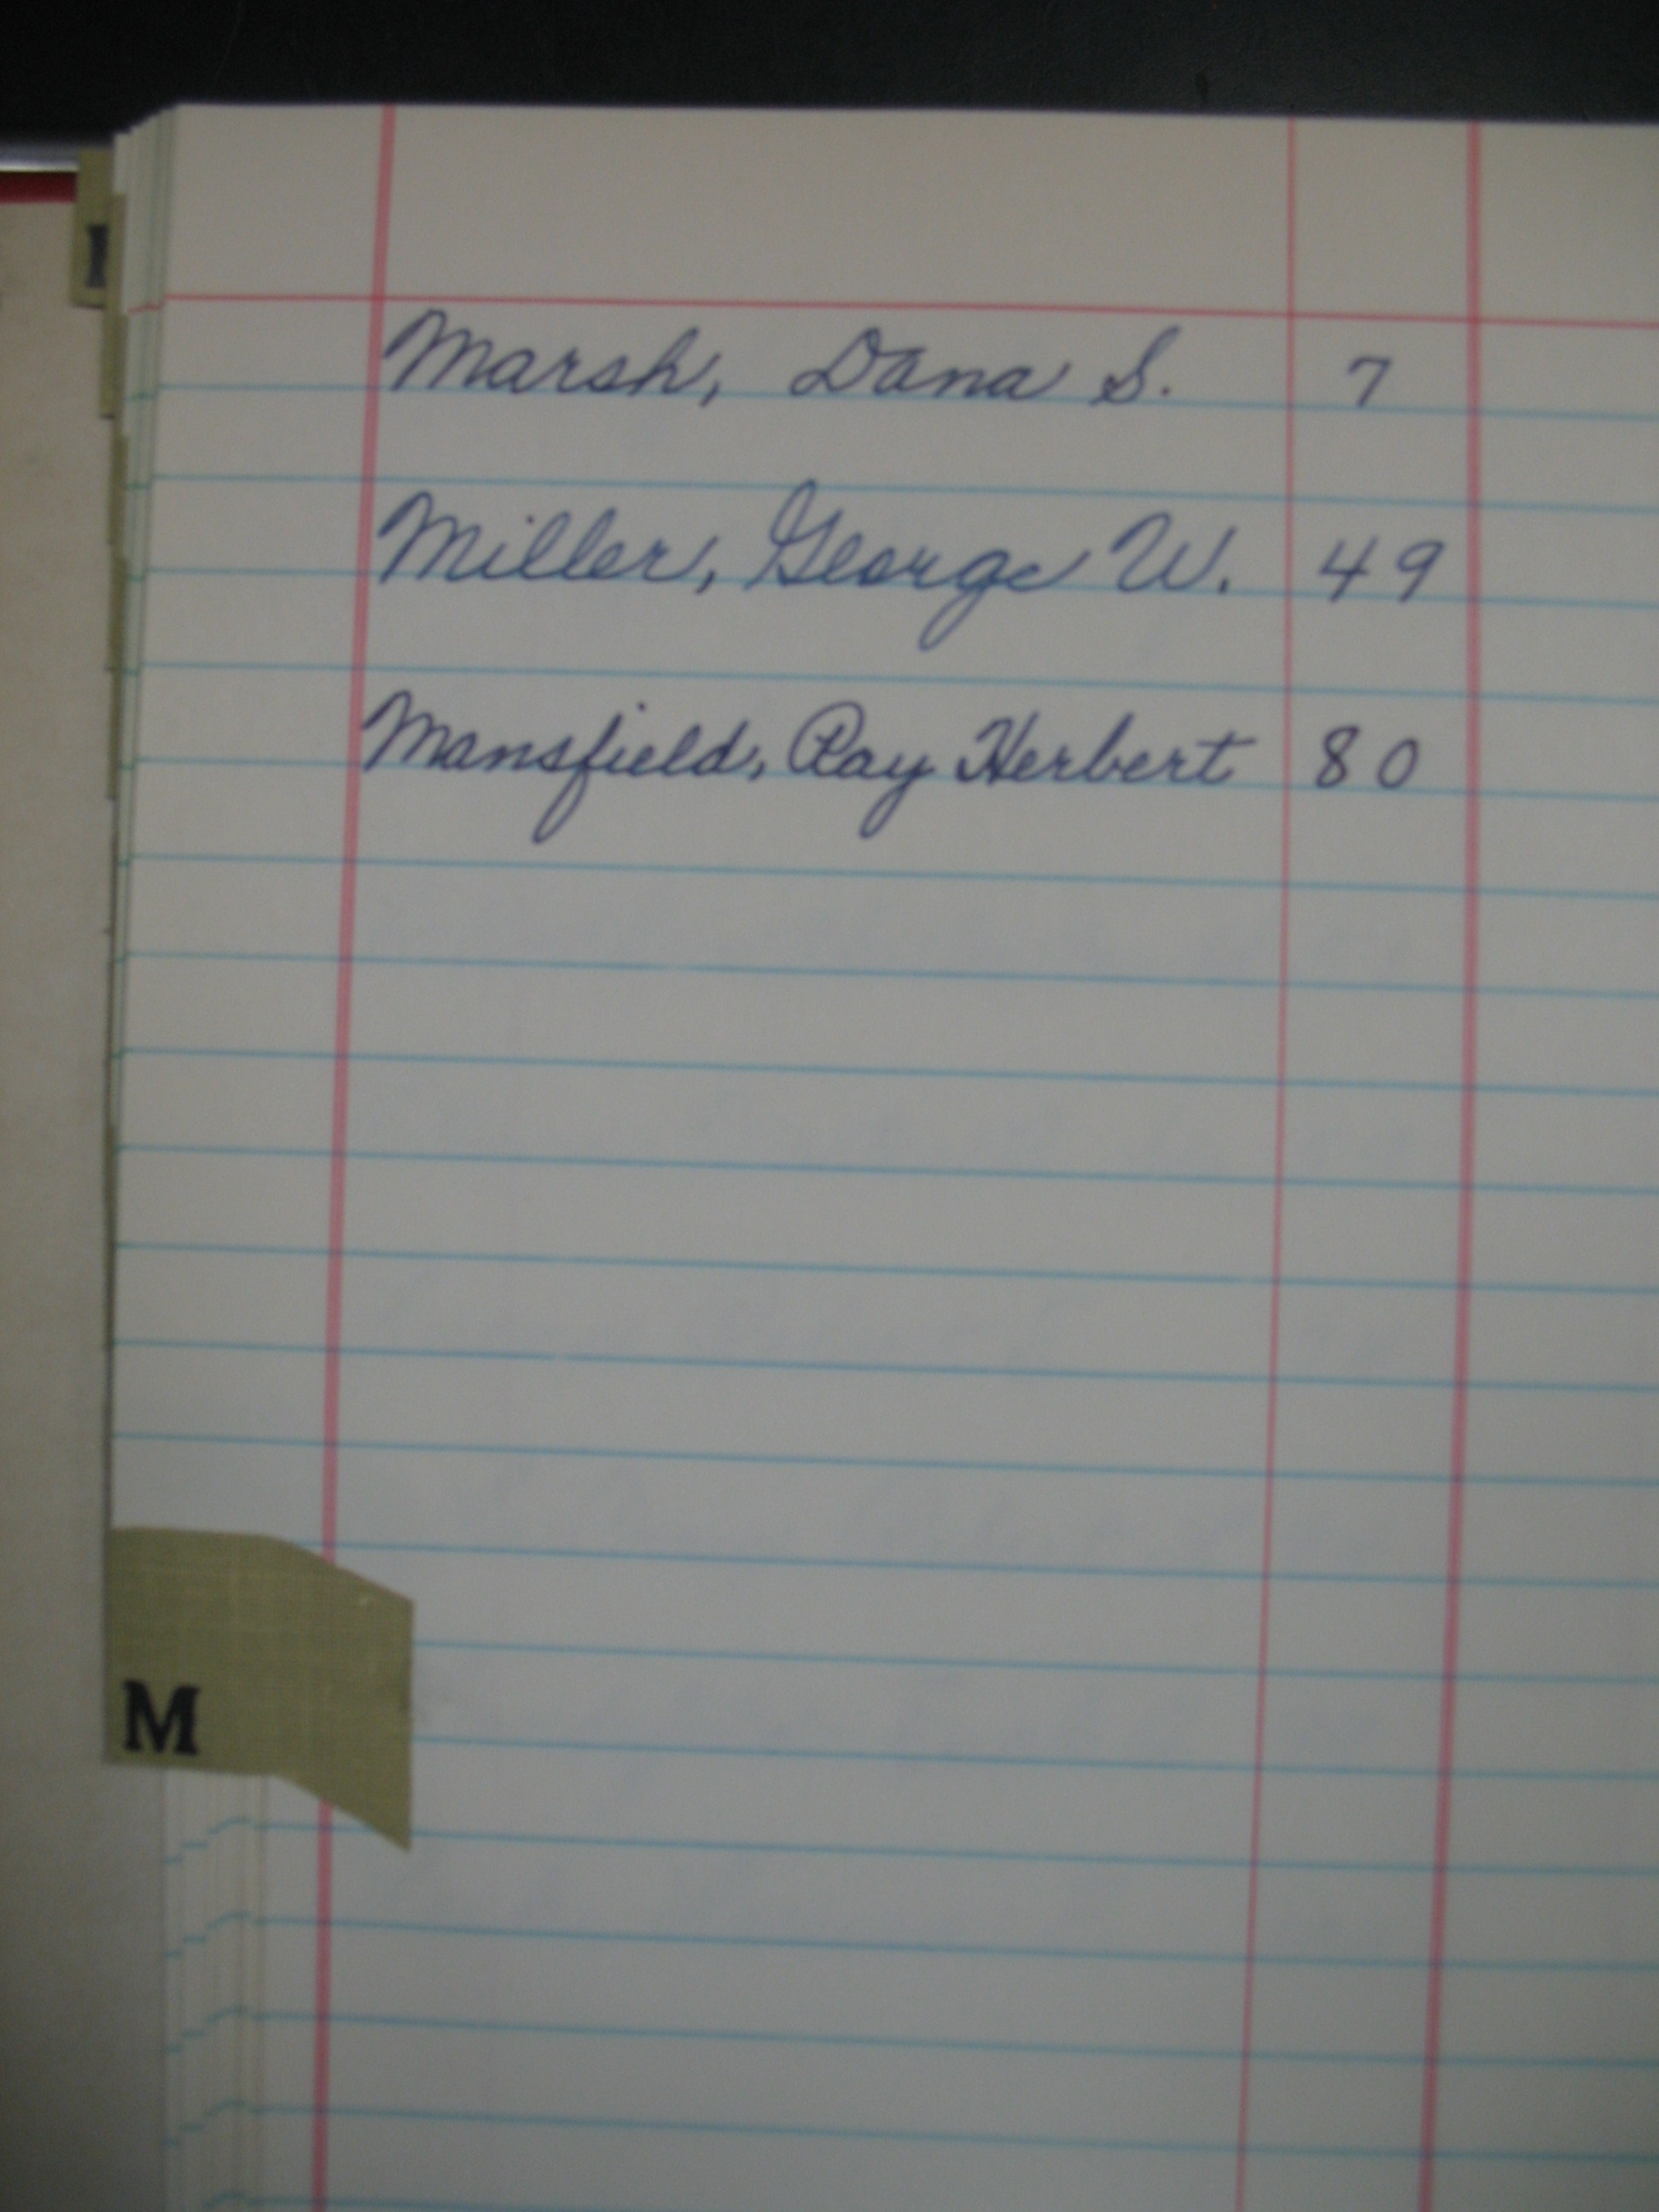 Marsh, Dana S. 7
Miller, George W. 49
Mansfield, Ray Herbert 80
M